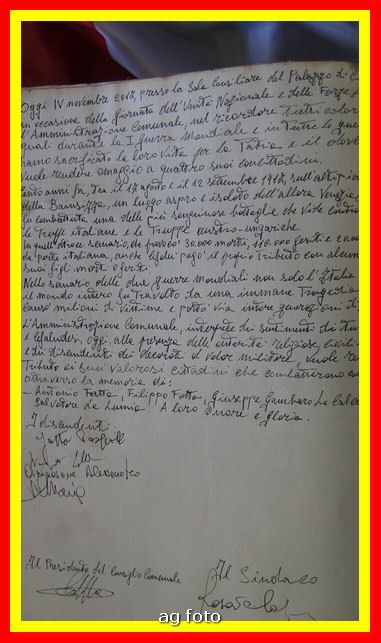 Oggi IV novembre 2017, presso la Sala Consiliare del Palazzo di C
in occasione della giornata dell'Unità Nazionale e delle Forze
l'Amministrazione Comunale, nel ricordare tutti color
quali durante la I guerra Mondiale e in tutte le gue
hanno sacrificato le loro vite per la Patria e il dove
vuole rendere omaggio a quattro suoi concittadini.
Cento anni fa, tra il 17 agosto e il 12 settembre 1917, sull'altopia
della Bainsizza, un luogo aspro e isolato dell'allora Venezia
fu combattuta una delle più sanguinose battaglie che vide
le truppe italiane e le truppe austro-ungariche.
In quell'atroce scenario, che provocò 30.000 morti, 110.000 feriti e
da parte italiana, anche Cefalù pagò il proprio tributo con alcun
suoi figli morti o feriti.
Nello scenario delle due guerre Mondiali non solo l'Italia
il mondo intero fu travolto da una immane tragedia
causò milioni di vittime e portò via intere generazioni di
L'Amministrazione Comunale, interprete dei sentimenti di
i cefaludesi, oggi, alla presenza delle autorità religiose, civili
e dei discendenti dei decorati al valor militare, vuole re
tributo ai suoi valorosi cittadini che combatterono
attraverso la memoria di:
- Antonio Fatta, Filippo Fatta, Giuseppe Gambaro
Salvatore La Lumia. A loro onore e gloria.
I discendenti
Fatta
Alessandro
Il Presidente del Consiglio Comunale
Il Sindaco
ag foto